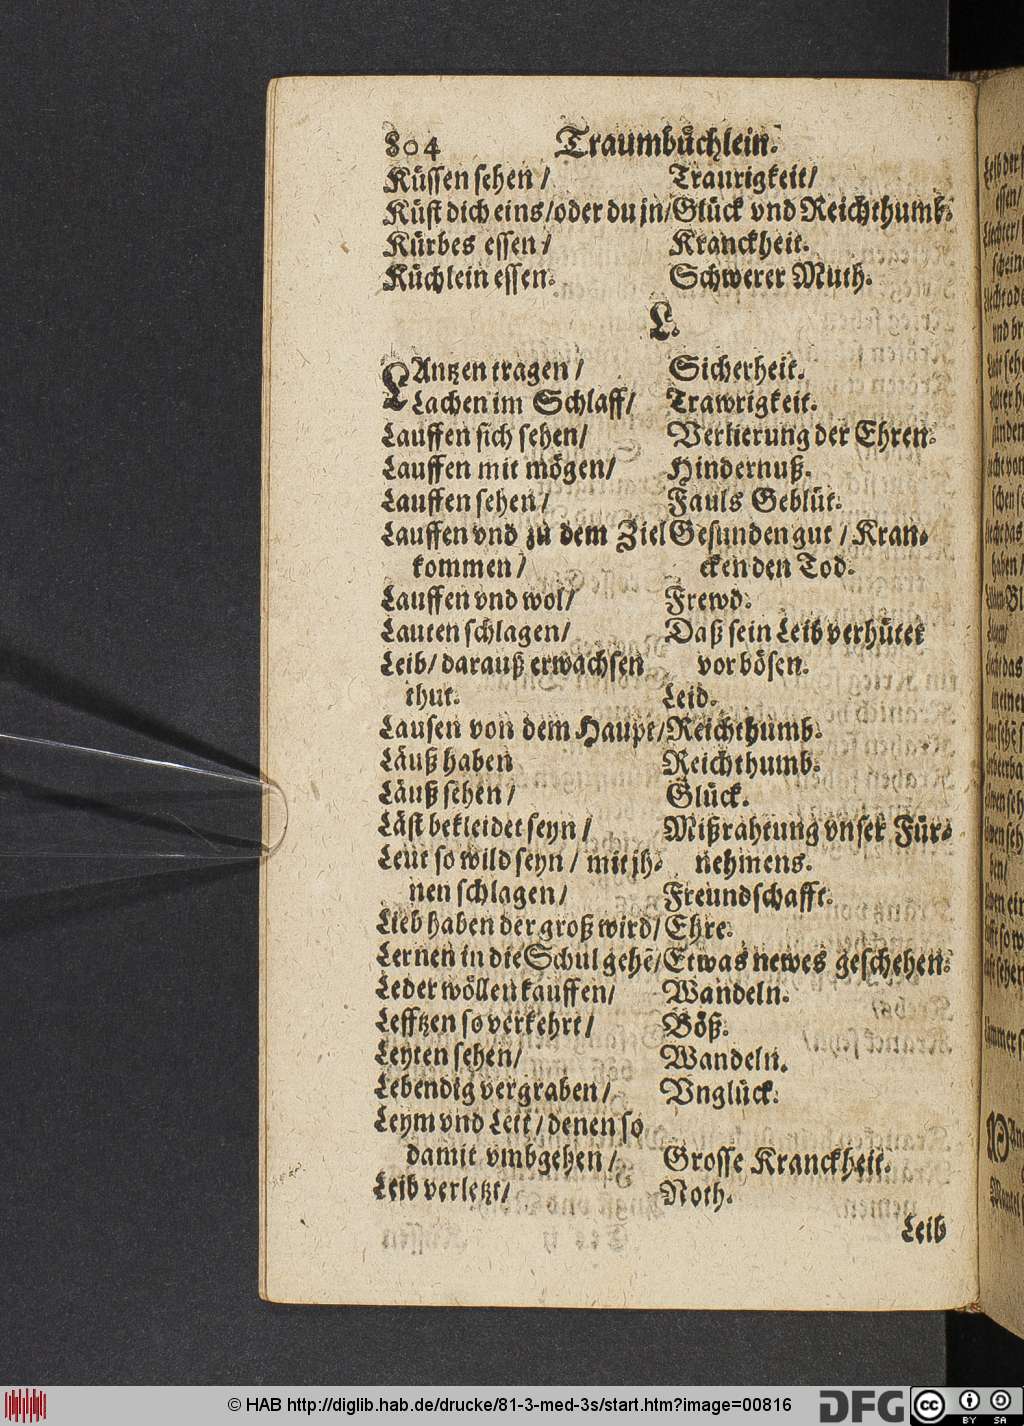 804 Traumbüchlein.
Küssen sehen / Traurigkeit/
Küst dich eins/oder du jn/ Glück vnd Reichthumb.
Kürbes essen / Kranckheit.
Küchlein essen. Schwerer Muth.
L.
LAntzen tragen / Sicherheit.
Lachen im Schlaff/ Trawrigkeit.
Lauffen sich sehen/ Verlierung der Ehren.
Lauffen mit mögen/ Hindernuß.
Lauffen sehen / Fauls Geblüt.
Lauffen vnd zu dem Ziel Gesunden gut / Kran-
kommen / cken den Tod.
Lauffen vnd wol/ Frewd.
Lauten schlagen/ Daß sein Leib verhütet
Leib/ darauß erwachsen vor bösen.
thut. Leid.
Lausen von dem Haupt/ Reichthumb.
Läuß haben Reichthumb.
Läuß sehen / Glück.
Läst bekleidet seyn / Mißrahtung vnser Für-
Leut so wild seyn / mit jh- nehmens.
nen schlagen / Freundschafft.
Lieb haben der groß wird/ Ehre.
Lernen in die Schul gehē/ Etwas newes geschehen.
Leder wöllen kauffen/ Wandeln.
Lefftzen so verkehrt / Böß.
Leyten sehen/ Wandeln.
Lebendig vergraben / Vnglück.
Leym vnd Leit / denen so
damit vmbgehen / Grosse Kranckheit.
Leib verletzt/ Noth.
Leib
© HAB http://diglib.hab.de/drucke/81-3-med-3s/start.htm?image=00816
DFG
cc
BY SA